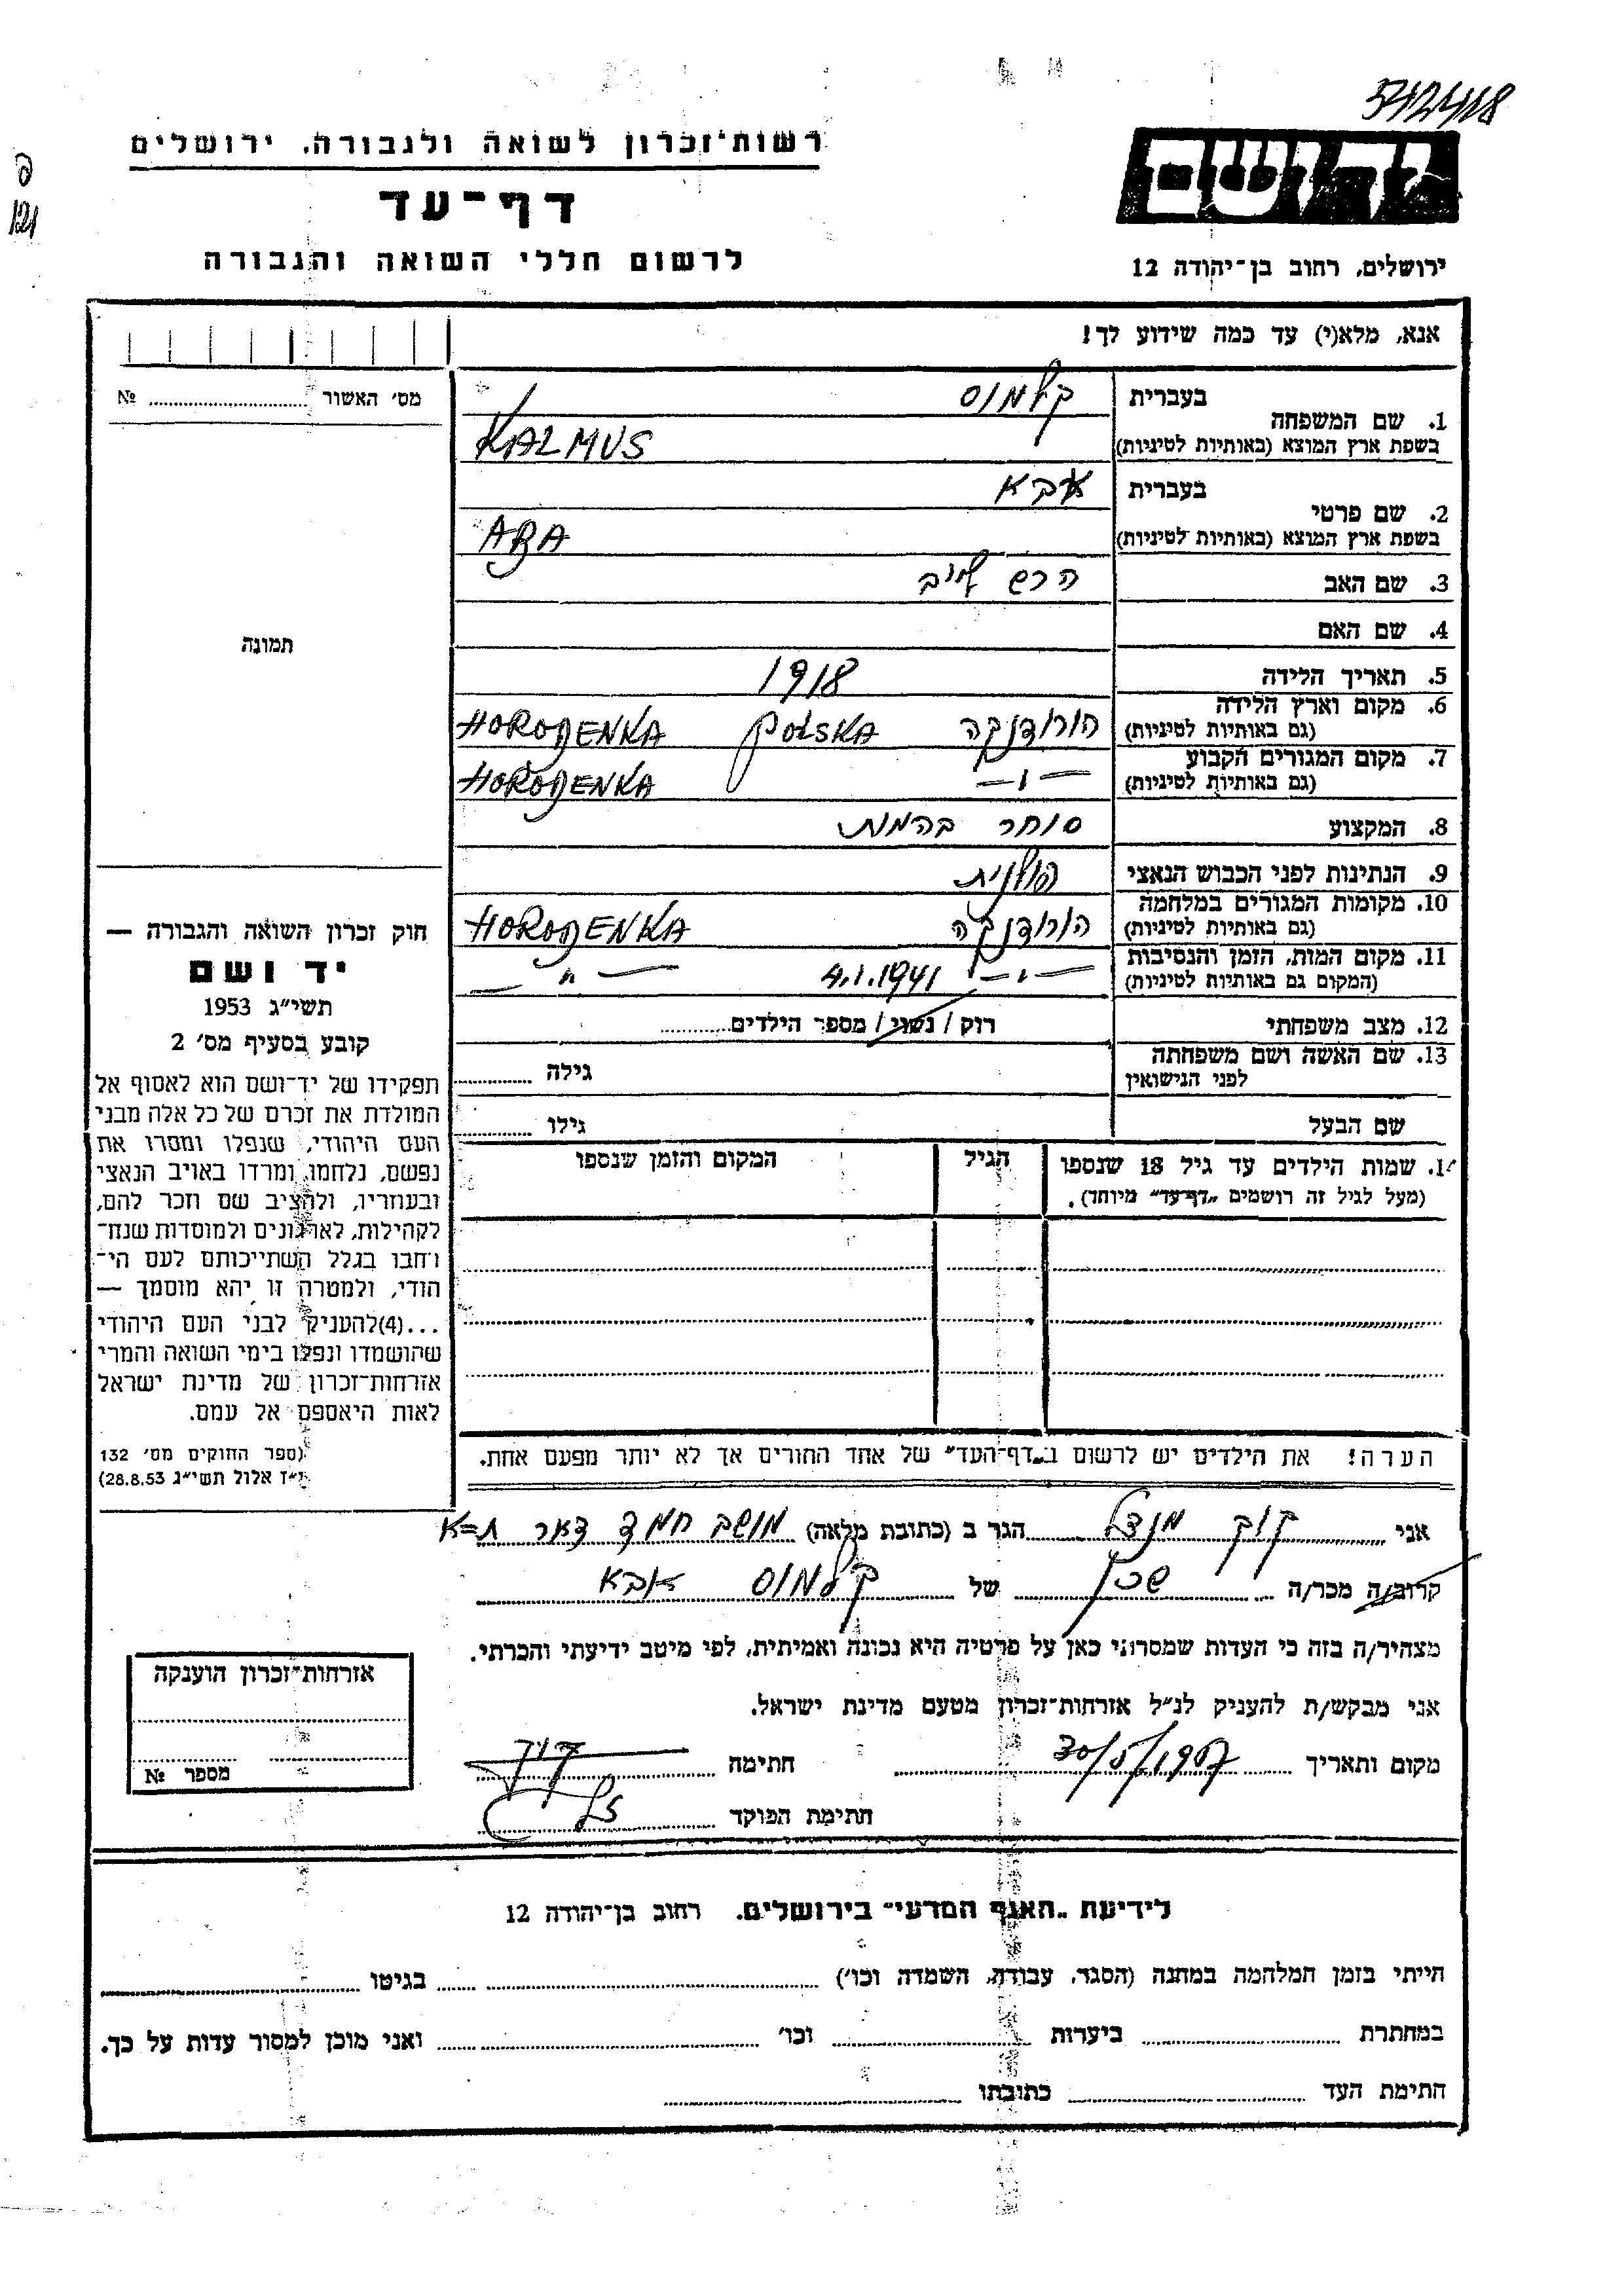 5712418
רשות־זכרון לשואה ולגבורה, ירושלים
דף־עד
לרשום חללי השואה והגבורה
יד ושם
ירושלים, רחוב בן־יהודה 12
פ
121
אנא, מלא(י) עד כמה שידוע לך!
מס׳ האשור № 
תמונה
1. שם המשפחה
בעברית קלמוס
בשפת ארץ המוצא (באותיות לטיניות) KALMUS
2. שם פרטי
בעברית אבא
בשפת ארץ המוצא (באותיות לטיניות) ABA
3. שם האב הרש לייב
4. שם האם
5. תאריך הלידה 1918
6. מקום וארץ הלידה הורודנקה POLSKA HORODENKA
(גם באותיות לטיניות)
7. מקום המגורים הקבוע —"— HORODENKA
(גם באותיות לטיניות)
8. המקצוע סוחר בהמות
9. הנתינות לפני הכבוש הנאצי פולנית
10. מקומות המגורים במלחמה הורודנקה HORODENKA
(גם באותיות לטיניות)
11. מקום המות, הזמן והנסיבות —"— 4.1.1941 —"—
(המקום גם באותיות לטיניות)
12. מצב משפחתי רוק / נשוי / מספר הילדים
13. שם האשה ושם משפחתה גילה
לפני הנישואין
שם הבעל גילו
14. שמות הילדים עד גיל 18 שנספו הגיל המקום והזמן שנספו
(מעל לגיל זה רושמים „דף־עד” מיוחד).
חוק זכרון השואה והגבורה —
יד ושם
תשי״ג 1953
קובע בסעיף מס׳ 2
תפקידו של יד־ושם הוא לאסוף אל
המולדת את זכרם של כל אלה מבני
העם היהודי, שנפלו ומסרו את
נפשם, נלחמו, ומרדו באויב הנאצי
ובעוזריו, ולהציב שם וזכר להם,
לקהילות, לארגונים ולמוסדות שנח־
רבו בגלל השתייכותם לעם הי־
הודי, ולמטרה זו יהא מוסמך —
...(4)להעניק לבני העם היהודי
שהושמדו ונפלו בימי השואה והמרי
אזרחות־זכרון של מדינת ישראל
לאות היאספם אל עמם.
(ספר החוקים מס׳ 132
י״ז אלול תשי״ג 28.8.53)
הערה! את הילדים יש לרשום ב„דף־העד” של אחד ההורים אך לא יותר מפעם אחת.
אני קוק מנדל הגר ב (כתובת מלאה) מושב חמד דאר ת=א
קרוב/ה מכר/ה שכן של קלמוס אבא
מצהיר/ה בזה כי העדות שמסרתי כאן על פרטיה היא נכונה ואמיתית, לפי מיטב ידיעתי והכרתי.
אני מבקש/ת להעניק לנ״ל אזרחות־זכרון מטעם מדינת ישראל.
מקום ותאריך 30/5/1957 חתימה קוק
חתימת הפוקד
אזרחות־זכרון הוענקה
מספר №
לידיעת „האגף המדעי” בירושלים. רחוב בן־יהודה 12
הייתי בזמן המלחמה במחנה (הסגר, עבודה, השמדה וכו׳) בגיטו
במחתרת ביערות וכו׳ ואני מוכן למסור עדות על כך.
חתימת העד כתובתו